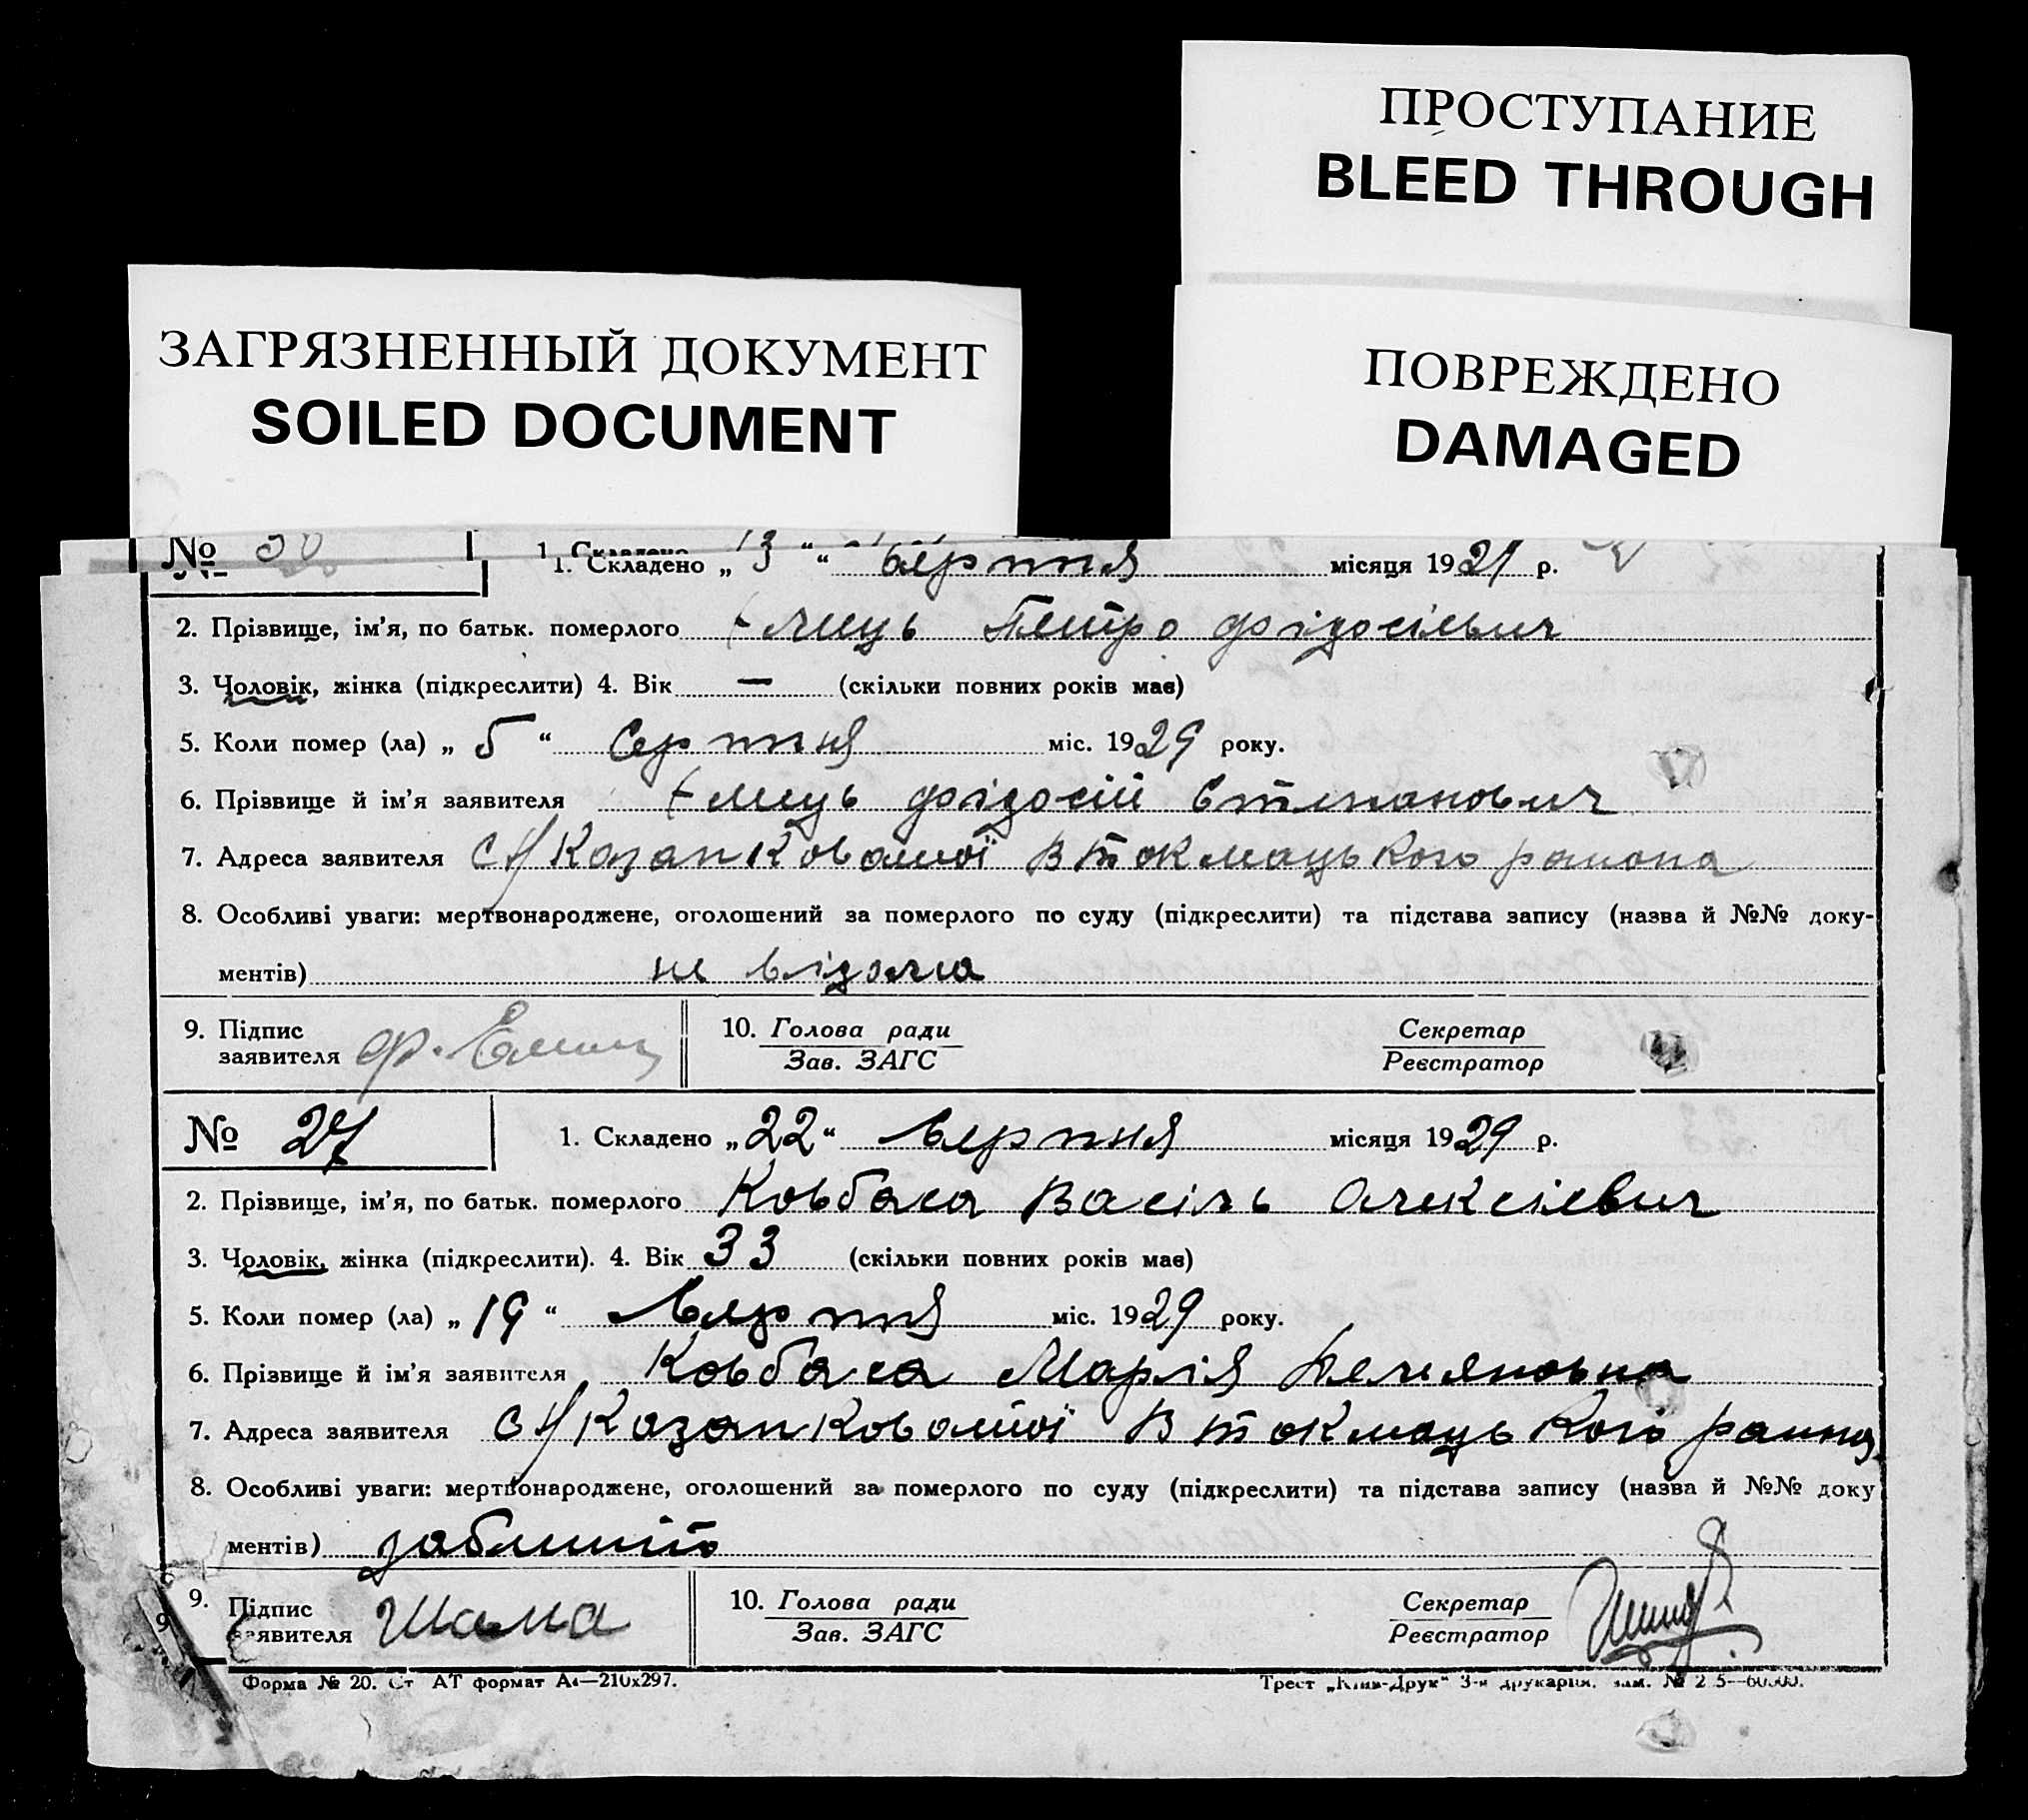 ПРОСТУПАНИЕ
BLEED THROUGH
ЗАГРЯЗНЕННЫЙ ДОКУМЕНТ
SOILED DOCUMENT
ПОВРЕЖДЕНО
DAMAGED
№
1. Складено „ 13 “ серпня місяця 19 р.
2. Прізвище, ім’я, по батьк. померлого Ємець Петро Фідосієвич
3. Чоловік, жінка (підкреслити) 4. Вік — (скільки повних років має)
5. Коли помер (ла) „ 5 “ Серпня міс. 1929 року.
6. Прізвище й ім’я заявителя Ємець Фідосій Степанович
7. Адреса заявителя В Токмацького района
8. Особливі уваги: мертвонароджене, оголошений за померлого по суду (підкреслити) та підстава запису (назва й №№ доку-
ментів) не відома
9. Підпис
заявителя Ф.
10. Голова ради
Зав. ЗАГС
Секретар
Реєстратор
№ 27
1. Складено „ 22 “ серпня місяця 1929 р.
2. Прізвище, ім’я, по батьк. померлого Ковбаса Василь Олексієвич
3. Чоловік, жінка (підкреслити). 4. Вік 33 (скільки повних років має)
5. Коли помер (ла) „ 19 “ Серпня міс. 1929 року.
6. Прізвище й ім’я заявителя Ковбаса Марія Демяновна
7. Адреса заявителя В Токмацького
8. Особливі уваги: мертвонароджене, оголошений за померлого по суду (підкреслити) та підстава запису (назва й №№ доку
ментів)
9. Підпис
заявителя
10. Голова ради
Зав. ЗАГС
Секретар
Реєстратор
Форма № 20. Ст АТ формат А4—210х297.
Трест „Київ-Друк“ 3-я друкарня.